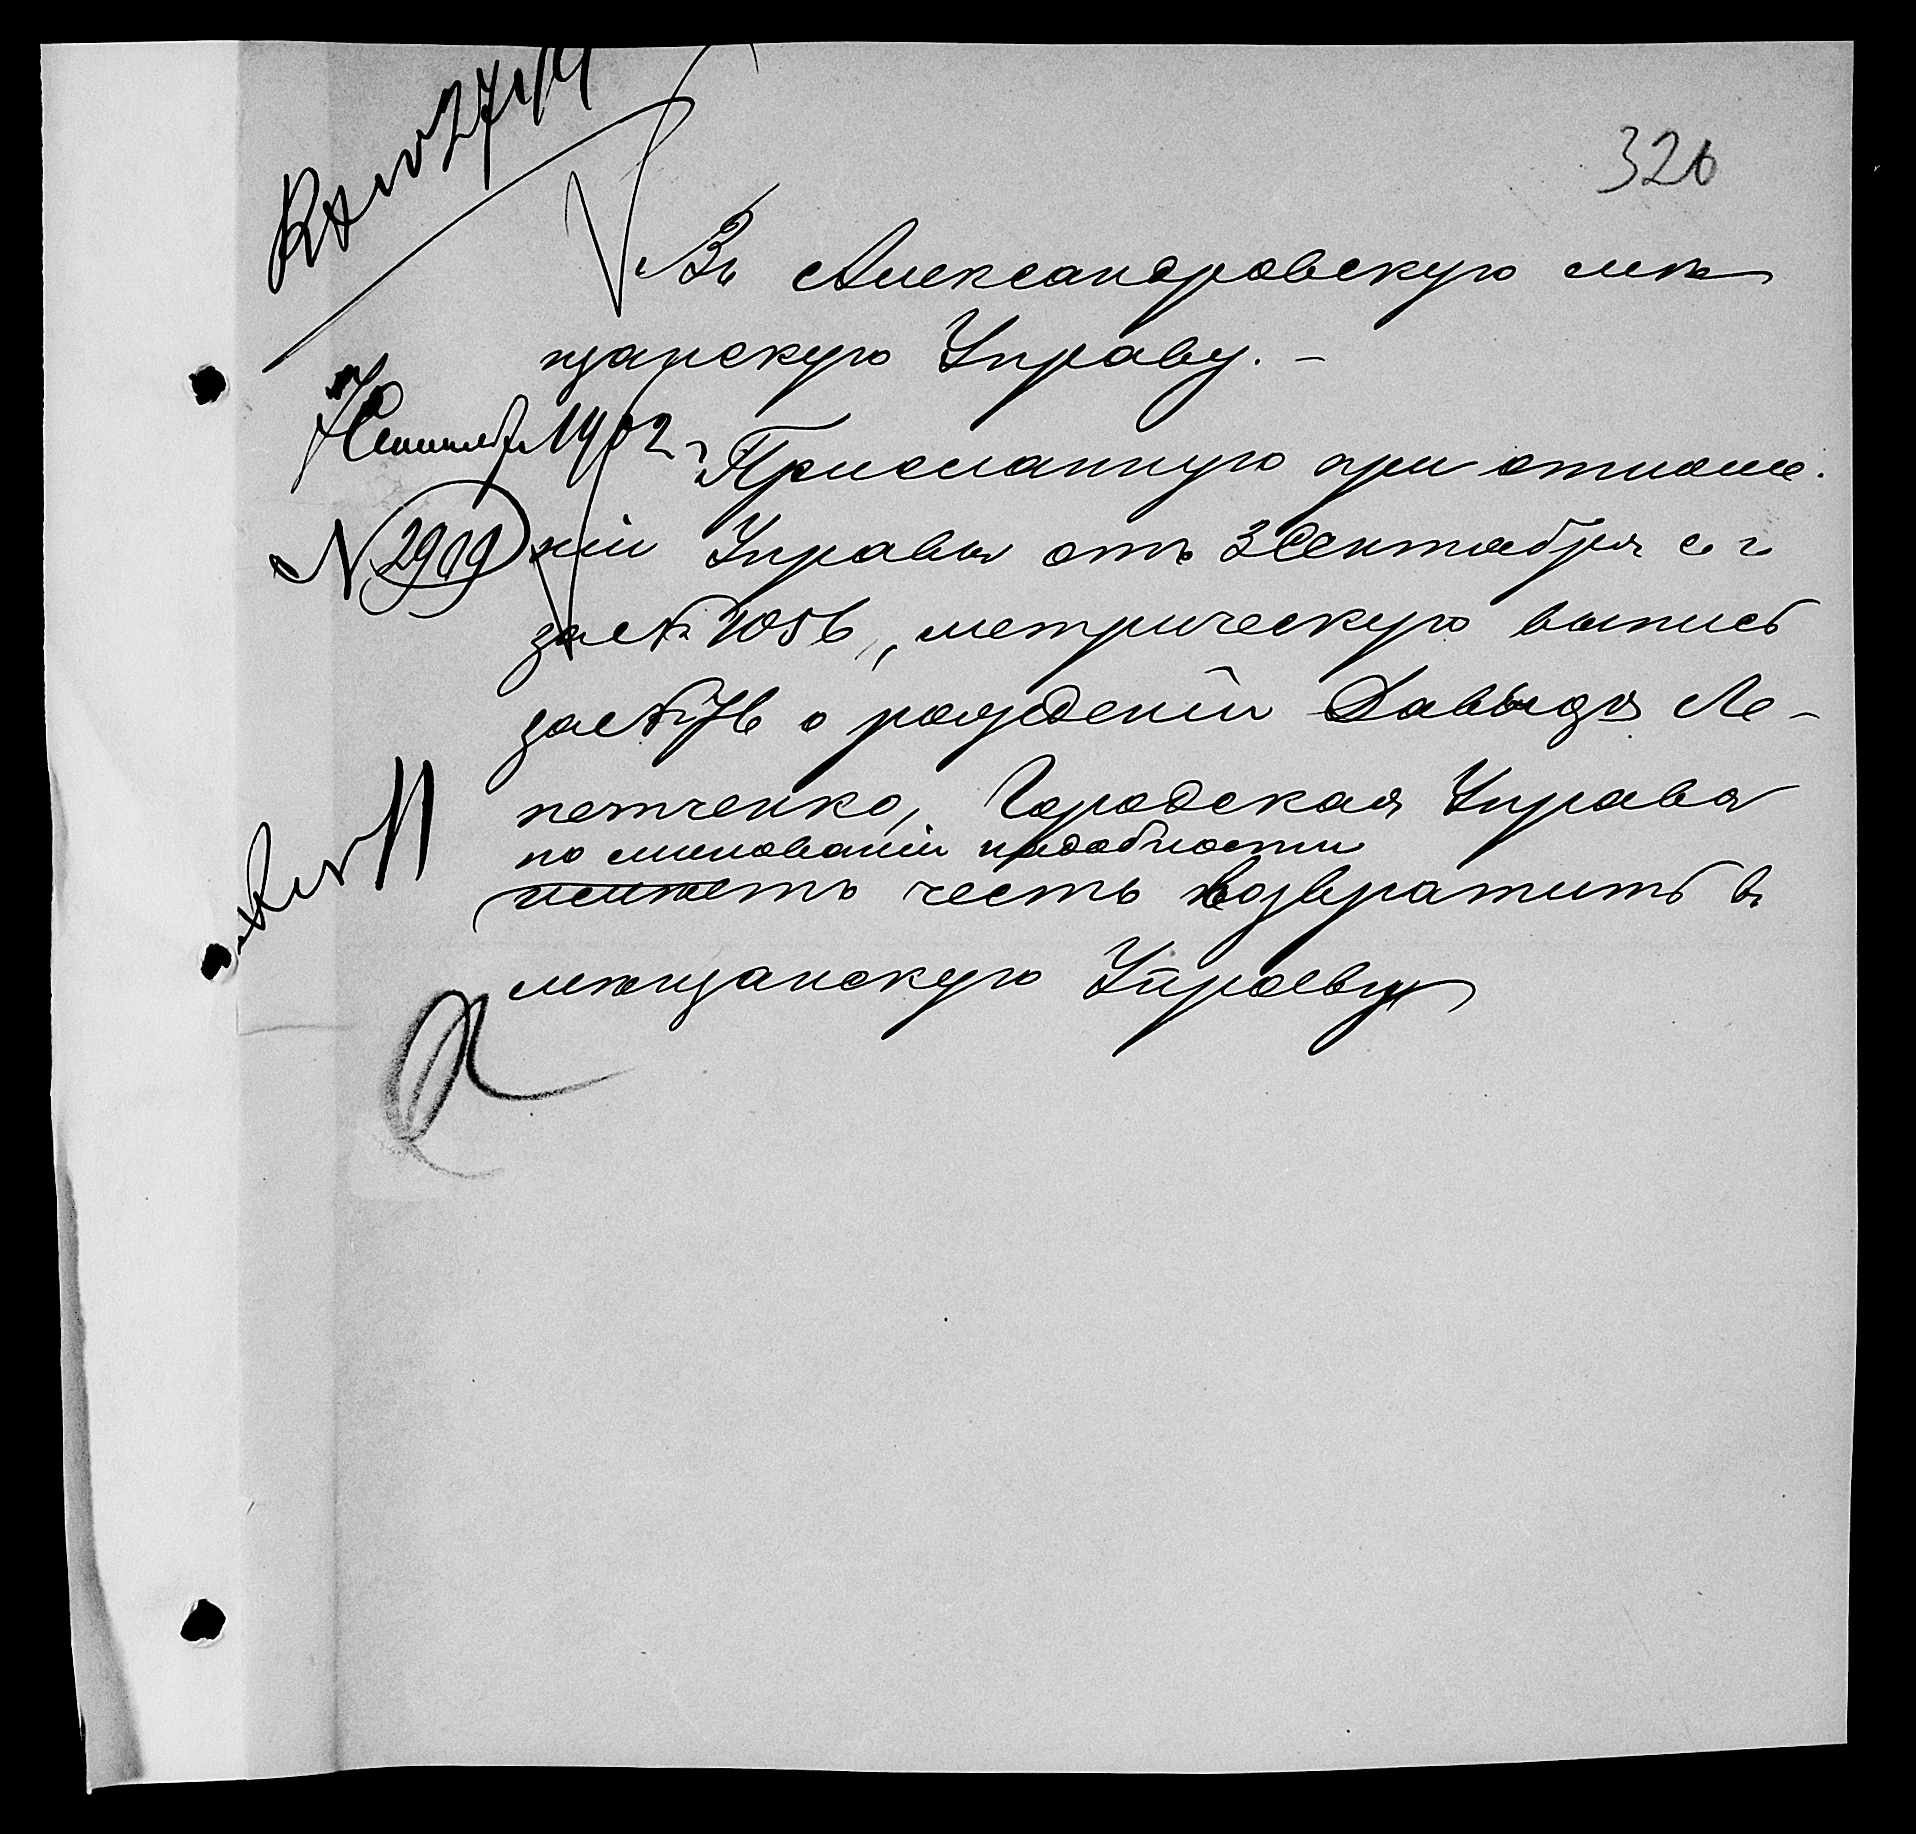 326
Въ Александровскую мѣ
щанскую Управу. –
7 Сентября 1902 г
Присланную при отноше.
№ 2919
ніи Управы отъ 3 Сентября с. г
за № 1056, метрическую выпись
за № 76 о рожденіи Давыда Ле-
петченко, Городская Управа
по минованіи надобности
имѣетъ честь возвратить въ
мѣщанскую Управу